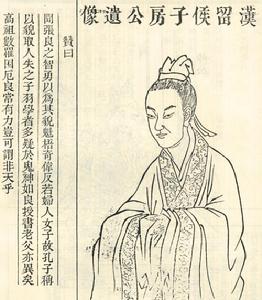 漢留侯子房公遺像
贊曰
聞張良之智勇以為其貌魁梧奇偉反若婦人女子故孔子稱
以貌取人失之子羽學者多疑於鬼神如良授書老父亦異矣
高祖數罹困厄良常有力豈可謂非天乎